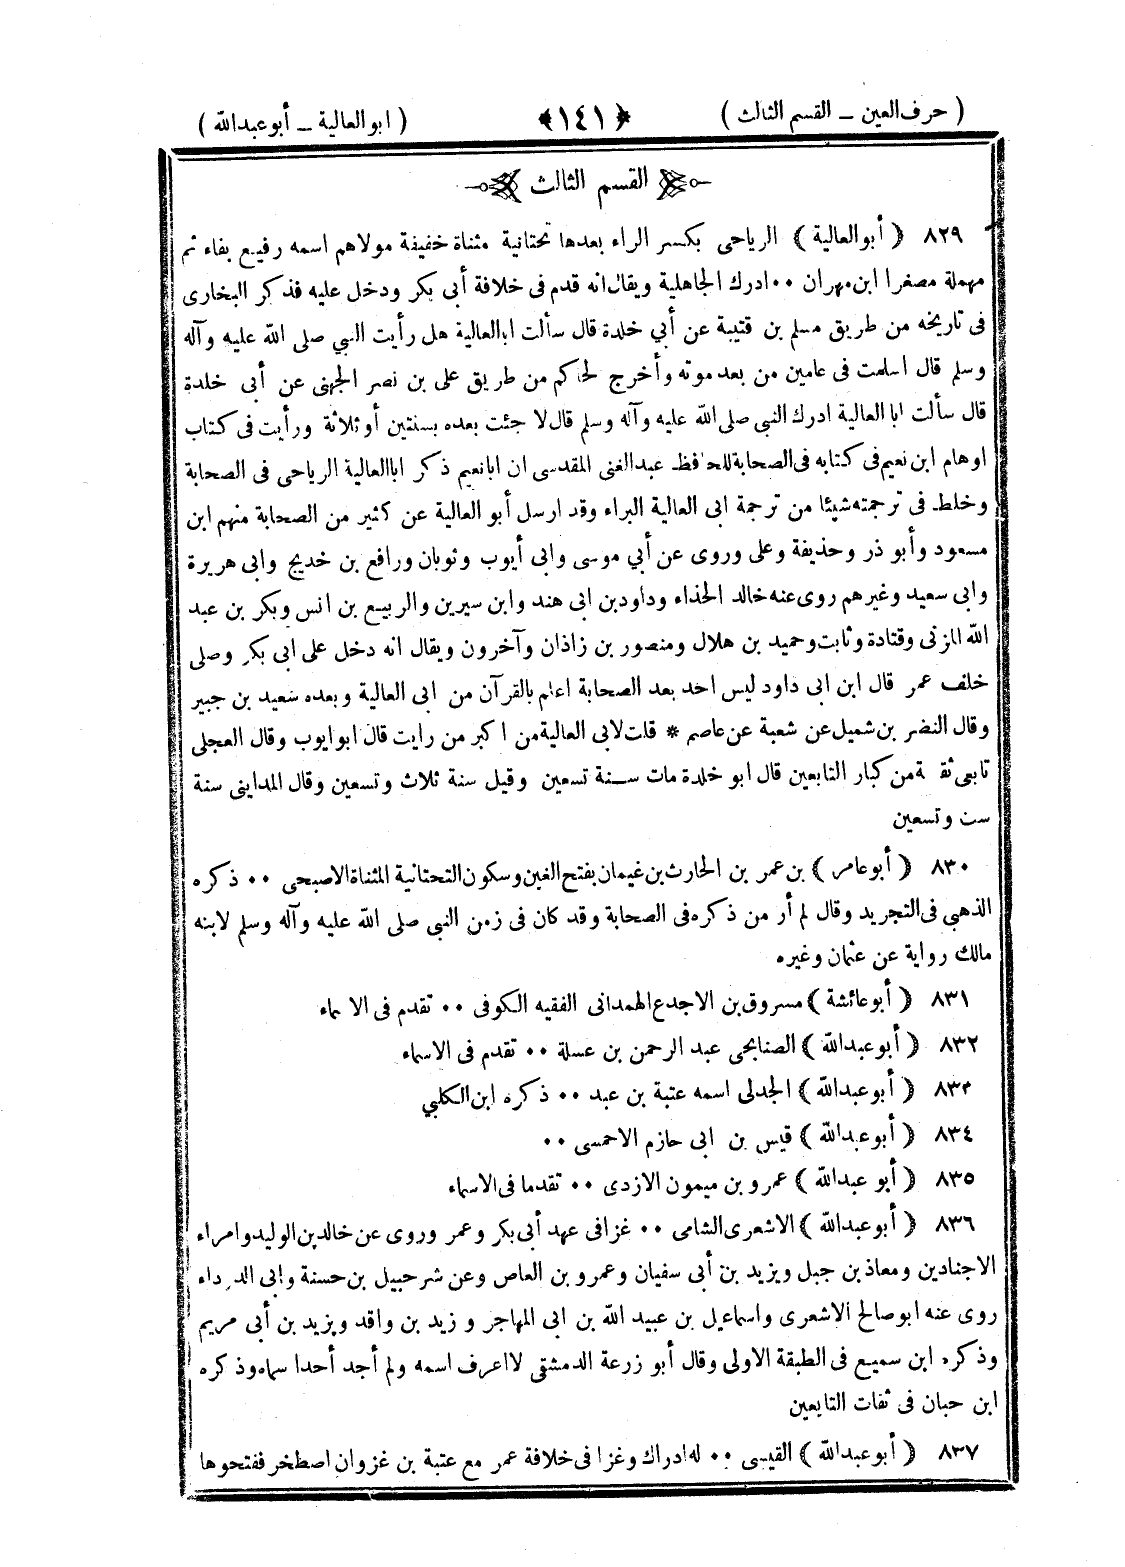 ( حرف العين ــ القسم الثالث )
﴿ ١٤١ ﴾
( ابو العالية ــ أبو عبدالله )
القسم الثالث
٨٢٩ ( أبو العالية ) الرياحى بكسر الراء بعدها تحتانية مثناة خفيفة مولاهم اسمه رفيع بفاء ثم
مهملة مصغرا ابن مهران ٠٠ ادرك الجاهلية ويقال انه قدم فى خلافة أبى بكر ودخل عليه فذكر البخارى
فى تاريخه من طريق مسلم بن قتيبة عن أبي خلدة قال سألت ابا العالية هل رأيت النبي صلى الله عليه وآله
وسلم قال اسلمت فى عامين من بعد موته وأخرج لحاكم من طريق على بن نصر الجهنى عن أبى خلدة
قال سألت ابا العالية ادرك النبى صلى الله عليه وآله وسلم قال لا جئت بعده بسنتين أو ثلاثة ورأيت فى كتاب
اوهام ابن نعيم فى كتابه فى الصحابة للحافظ عبدالغنى المقدسى ان ابا نعيم ذكر ابا العالية الرياحى فى الصحابة
وخلط فى ترجمته شيئا من ترجمة ابى العالية البراء وقد ارسل أبو العالية عن كثير من الصحابة منهم ابن
مسعود وأبو ذر وحذيفة وعلى وروى عن أبي موسى وابى أيوب وثوبان ورافع بن خديج وابى هريرة
وابى سعيد وغيرهم روى عنه خالد الحذاء وداود بن ابى هند وابن سيرين والربيع بن انس وبكر بن عبد
الله المزنى وقتادة وثابت وحميد بن هلال ومنصور بن زاذان وآخرون ويقال انه دخل على ابى بكر وصلى
خلف عمر قال ابن ابى داود ليس احد بعد الصحابة اعلم بالقرآن من ابى العالية وبعده سعيد بن جبير
وقال النضر بن شميل عن شعبة عن عاصم * قلت لابى العالية من اكبر من رايت قال ابو ايوب وقال العجلى
تابعى ثقة من كبار التابعين قال ابو خلدة مات سنة تسعين وقيل سنة ثلاث وتسعين وقال المداينى سنة
ست وتسعين
٨٣٠ ( أبو عامر ) بن عمر بن الحارث بن غيمان بفتح الغين وسكون التحتانية المثناة الاصبحى ٠٠ ذكره
الذهبي فى التجريد وقال لم أر من ذكره فى الصحابة وقد كان فى زمن النبي صلى الله عليه وآله وسلم لابنه
مالك رواية عن عثمان وغيره
٨٣١ ( أبو عائشة ) مسروق بن الاجدع الهمدانى الفقيه الكوفى ٠٠ تقدم فى الاسماء
٨٣٢ ( أبو عبدالله ) الصنابحى عبد الرحمن بن عسلة ٠٠ تقدم فى الاسماء
٨٣٣ ( أبو عبدالله ) الجدلى اسمه عتبة بن عبد ٠٠ ذكره ابن الكلبي
٨٣٤ ( أبو عبدالله ) قيس بن ابى حازم الاحمسى ٠٠
٨٣٥ ( أبو عبدالله ) عمرو بن ميمون الازدى ٠٠ تقدما فى الاسماء
٨٣٦ ( أبو عبدالله ) الاشعرى الشامى ٠٠ غزا فى عهد أبى بكر وعمر وروى عن خالد بن الوليد وامراء
الاجنادين ومعاذ بن جبل ويزيد بن أبى سفيان وعمرو بن العاص وعن شرحبيل بن حسنة وابى الدرداء
روى عنه ابو صالح الاشعرى واسماعيل بن عبيد الله بن ابى المهاجر وزيد بن واقد ويزيد بن أبى مريم
وذكره ابن سميع فى الطبقة الاولى وقال أبو زرعة الدمشقى لا اعرف اسمه ولم أجد أحدا سماه وذكره
ابن حبان فى ثقات التابعين
٨٣٧ ( أبو عبدالله ) القيسى ٠٠ له ادراك وغزا فى خلافة عمر مع عتبة بن غزوان اصطخر ففتحوها